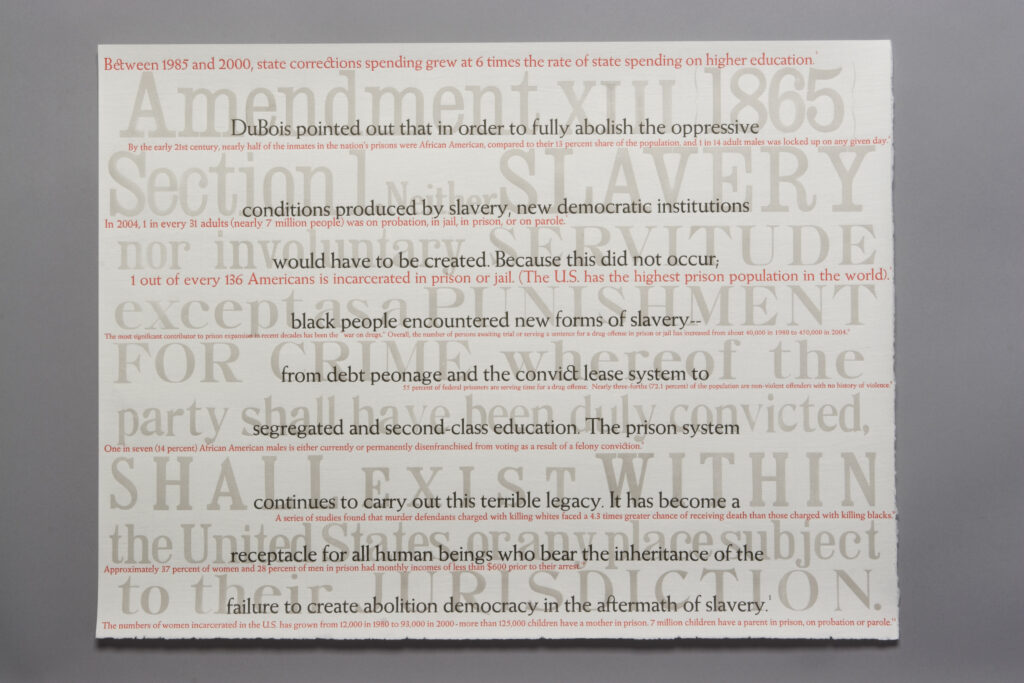 Between 1985 and 2000, state corrections spending grew at 6 times the rate of state spending on higher education.
Amendment XIII 1865
DuBois pointed out that in order to fully abolish the oppressive
By the early 21st century, nearly half of the inmates in the nation's prisons were African American, compared to their 13 percent share of the population, and 1 in 14 adult males was locked up on any given day.
Section 1 Neither SLAVERY
conditions produced by slavery, new democratic institutions
In 2004, 1 in every 31 adults (nearly 7 million people) was on probation, in jail, in prison, or on parole.
nor involuntary SERVITUDE
would have to be created. Because this did not occur;
1 out of every 136 Americans is incarcerated in prison or jail. (The U.S. has the highest prison population in the world).
except as a PUNISHMENT
black people encountered new forms of slavery--
"The most significant contributor to prison expansion in recent decades has been the "war on drugs." Overall, the number of persons awaiting trial or serving a sentence for a drug offense in prison or jail has increased from about 40,000 in 1980 to 450,000 in 2004."
FOR CRIME whereof the
from debt peonage and the convict lease system to
55 percent of federal prisoners are serving time for a drug offense. Nearly three-forths (72.1 percent) of the population are non-violent offenders with no history of violence.
party shall have been duly convicted,
segregated and second-class education. The prison system
One in seven (14 percent) African American males is either currently or permanently disenfranchised from voting as a result of a felony conviction.
SHALL EXIST WITHIN
continues to carry out this terrible legacy. It has become a
A series of studies found that murder defendants charged with killing whites faced a 4.3 times greater chance of receiving death than those charged with killing blacks.
the United States, or any place subject
receptacle for all human beings who bear the inheritance of the
Approximately 37 percent of women and 28 percent of men in prison had monthly incomes of less than $600 prior to their arrest.
to their JURISDICTION.
failure to create abolition democracy in the aftermath of slavery.¹
The numbers of women incarcerated in the U.S. has grown from 12,000 in 1980 to 93,000 in 2000-more than 125,000 children have a mother in prison. 7 million children have a parent in prison, on probation or parole.